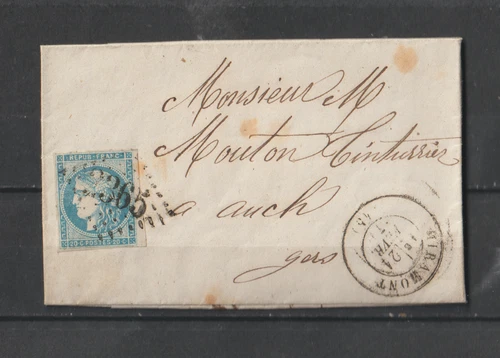 Monsieur M
Mouton Tinturier
a auch
gers
REPUB FRANC
20 C POSTES 20 C
MIRAMONT
24